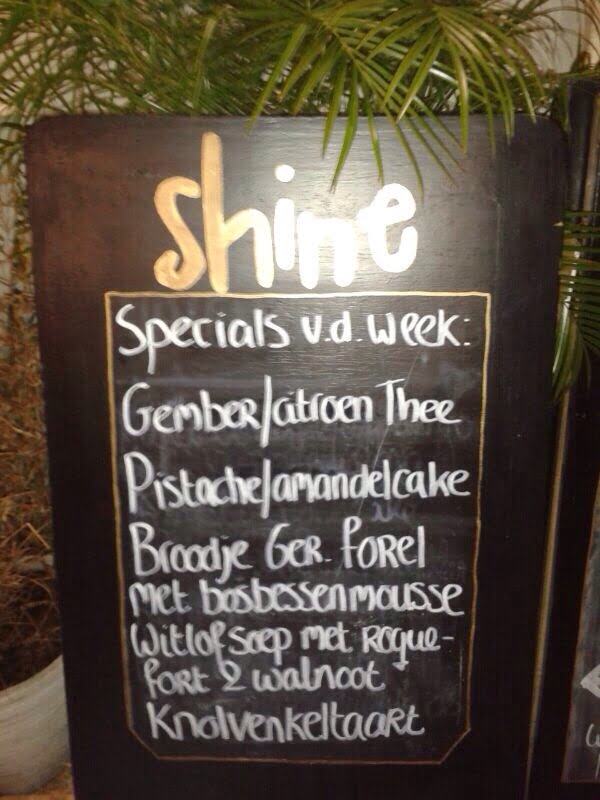 shine
Specials v.d. week:
Gember/citroen Thee
Pistache/amandelcake
Broodje Ger. forel
met bosbessenmousse
Witlof soep met Roque-
fort & walnoot
Knolvenkeltaart